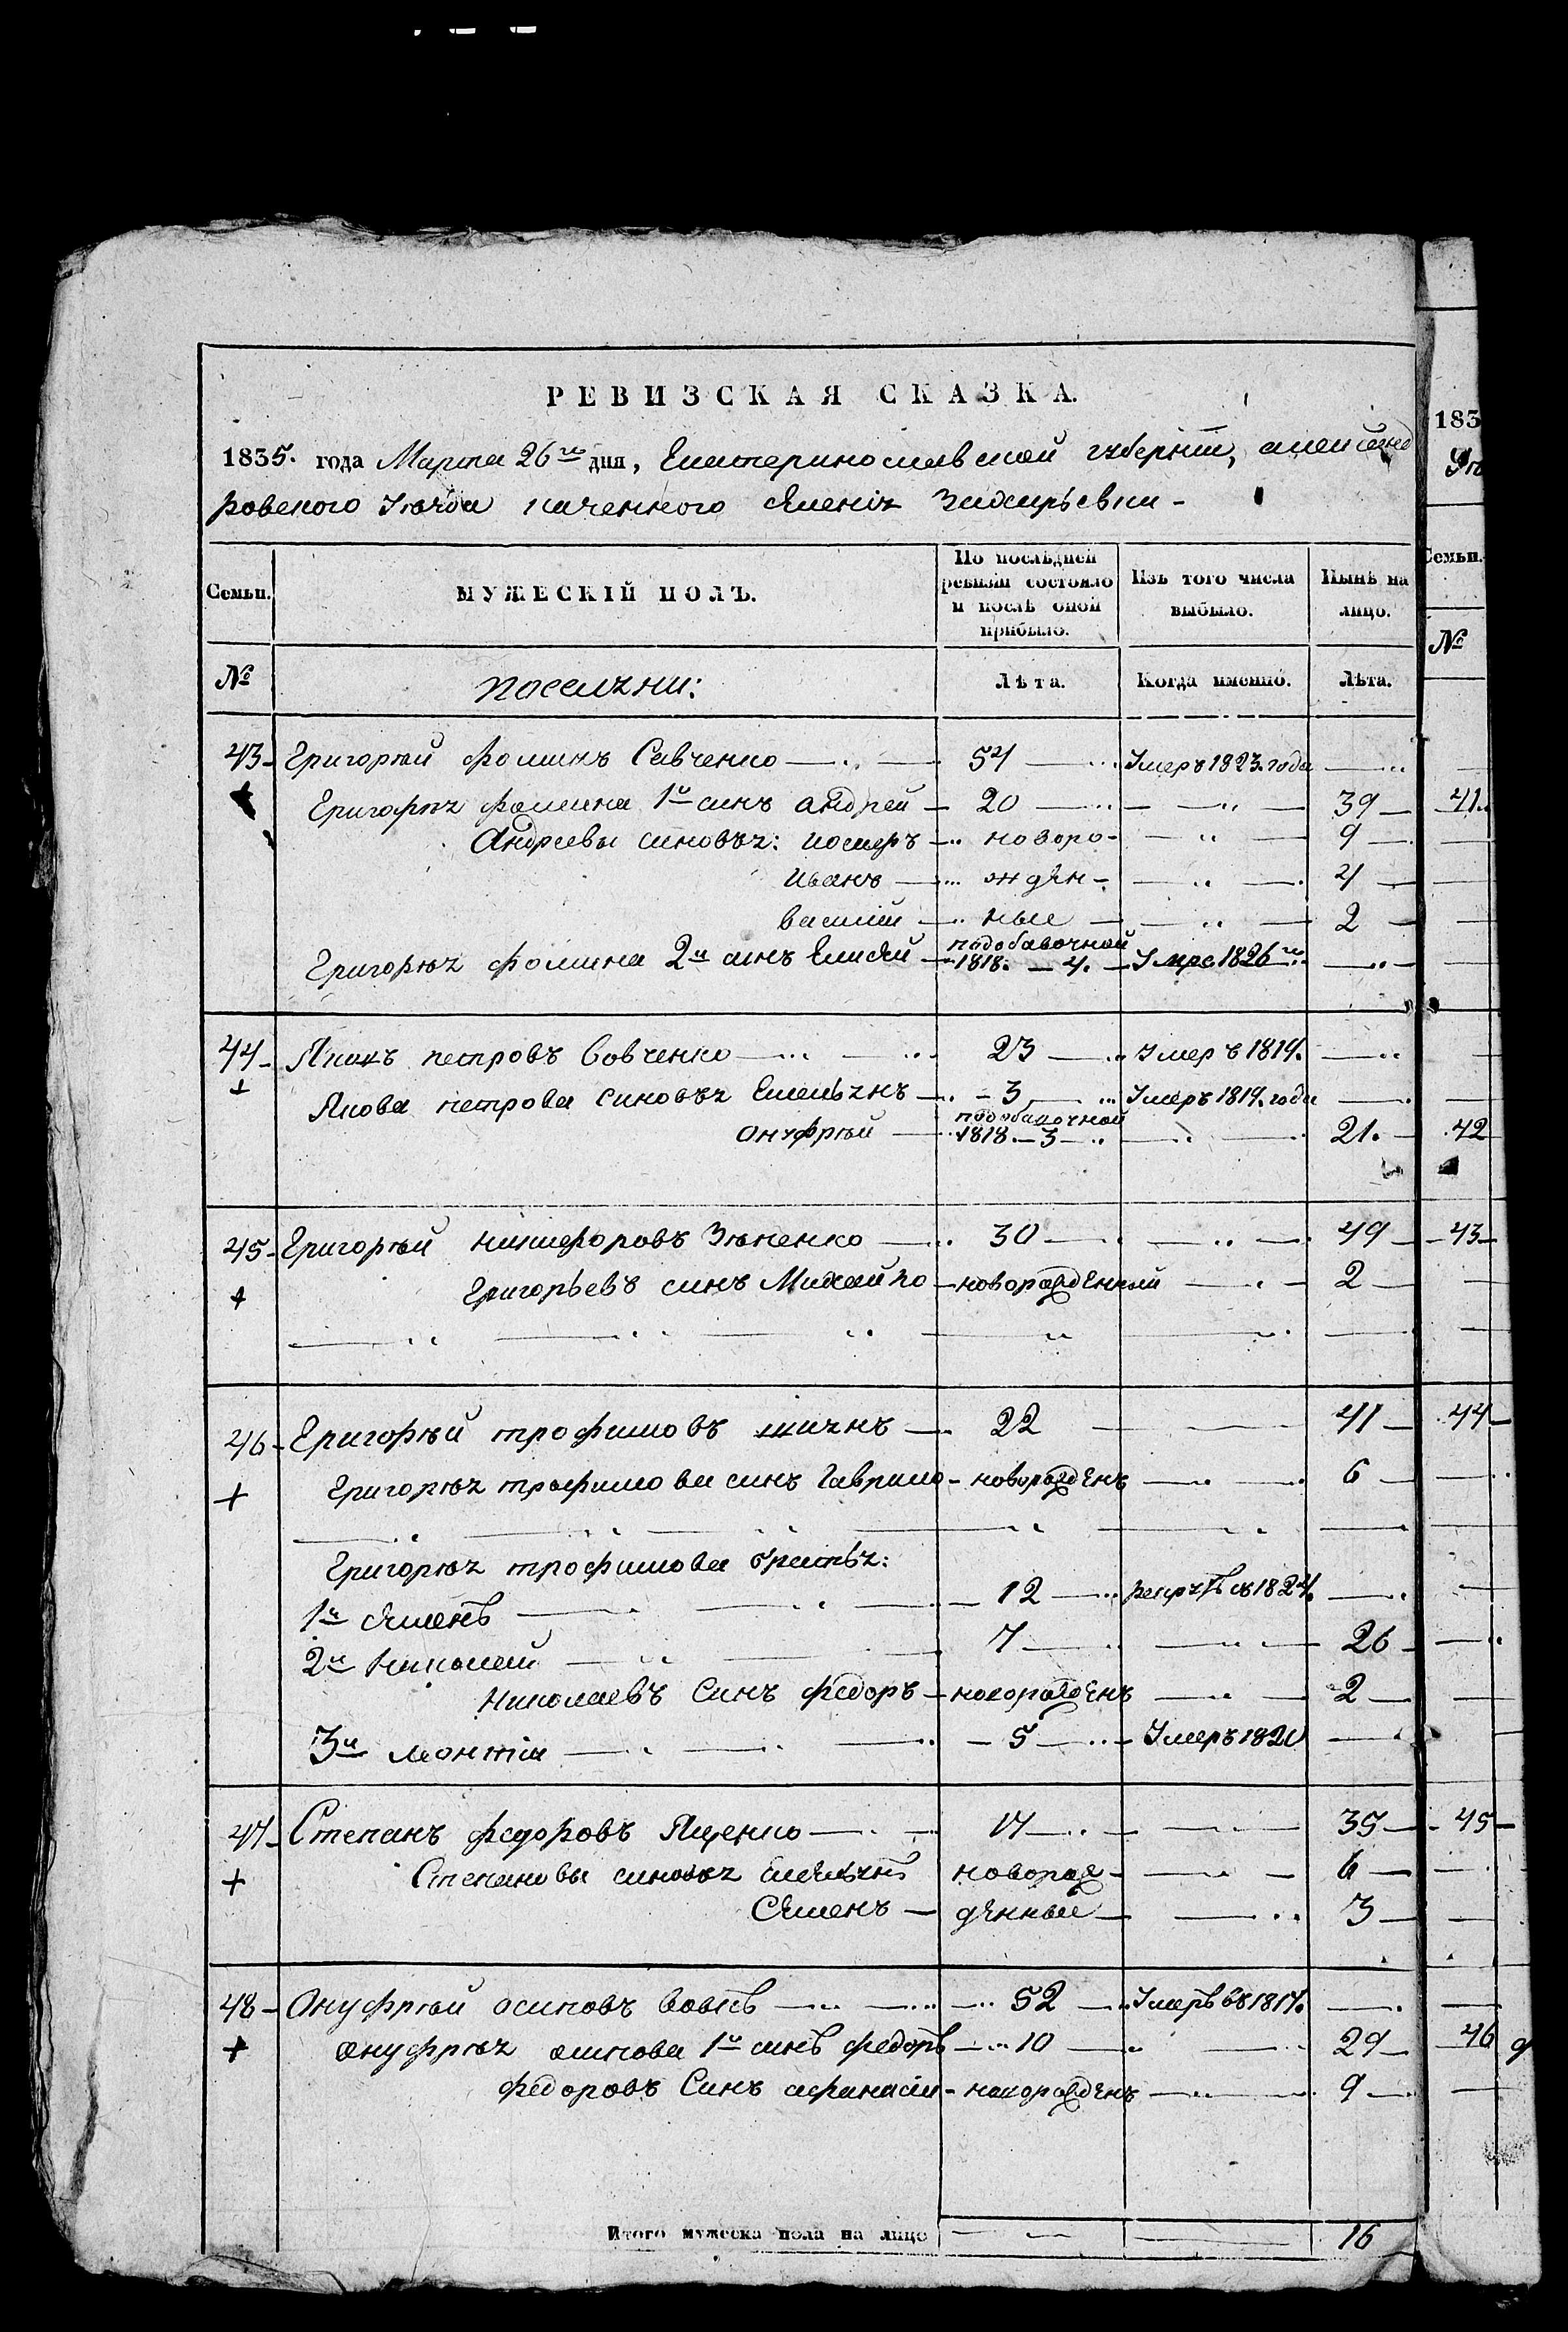 РЕВИЗСКАЯ СКАЗКА.
1835. года Марта 26го дня, Екатеринославской губерніи, александ
ровского казенного Селенія Захарьевки -
Семьи.
МУЖЕСКІЙ ПОЛЪ.
По послѣдней ревизіи состояло и послѣ оной прибыло.
Изъ того числа выбыло.
Нынѣ на лицо.
№
поселяни:
Лѣта.
Когда именно.
Лѣта.
43 Григорій фоминъ Савченко 54 Умеръ 1823. года
Григорія фомина 1й синъ андрей 20 39
Андреевы синовья: новоро- 9
Иванъ жден- 4
василій ные 2
Григорія фомина 2й синъ Елисей подобавочной 1818. 4. Умре 1826го
44 Яковъ петровъ Вовченко 23 Умеръ 1819.
Якова петрова синовья Емельянъ 3 Умеръ 1819. года
онуфрій подобавочной 1818. 3 21.
45 Григорій никифоровъ Зѣненко 30 49
Григорьевъ синъ Михайло новорожденный 2
46 Григорій трофимовъ 22 41
Григорія трофимова синъ Гаврило новорожденъ 6
Григорія трофимова братья:
1й Семенъ 12 рекрутъ съ 1824.
2й Николай 7 26
Николаевъ Синъ федоръ новорожденъ 2
3й леонтій 5 Умеръ 1820
47 Степанъ федоровъ Яценко 17 35
Степановы синовья емельянъ новорож- 6
Семенъ денные 3
48 Онуфрій осиповъ вовкъ 52 Умеръ въ 1817.
онуфрія осипова 1й синъ федоръ 10 29
федоровъ Синъ афанасій новорожденъ 9
Итого мужеска пола на лицо 16
183
Семьи.
№
41
42
43
44
45
46